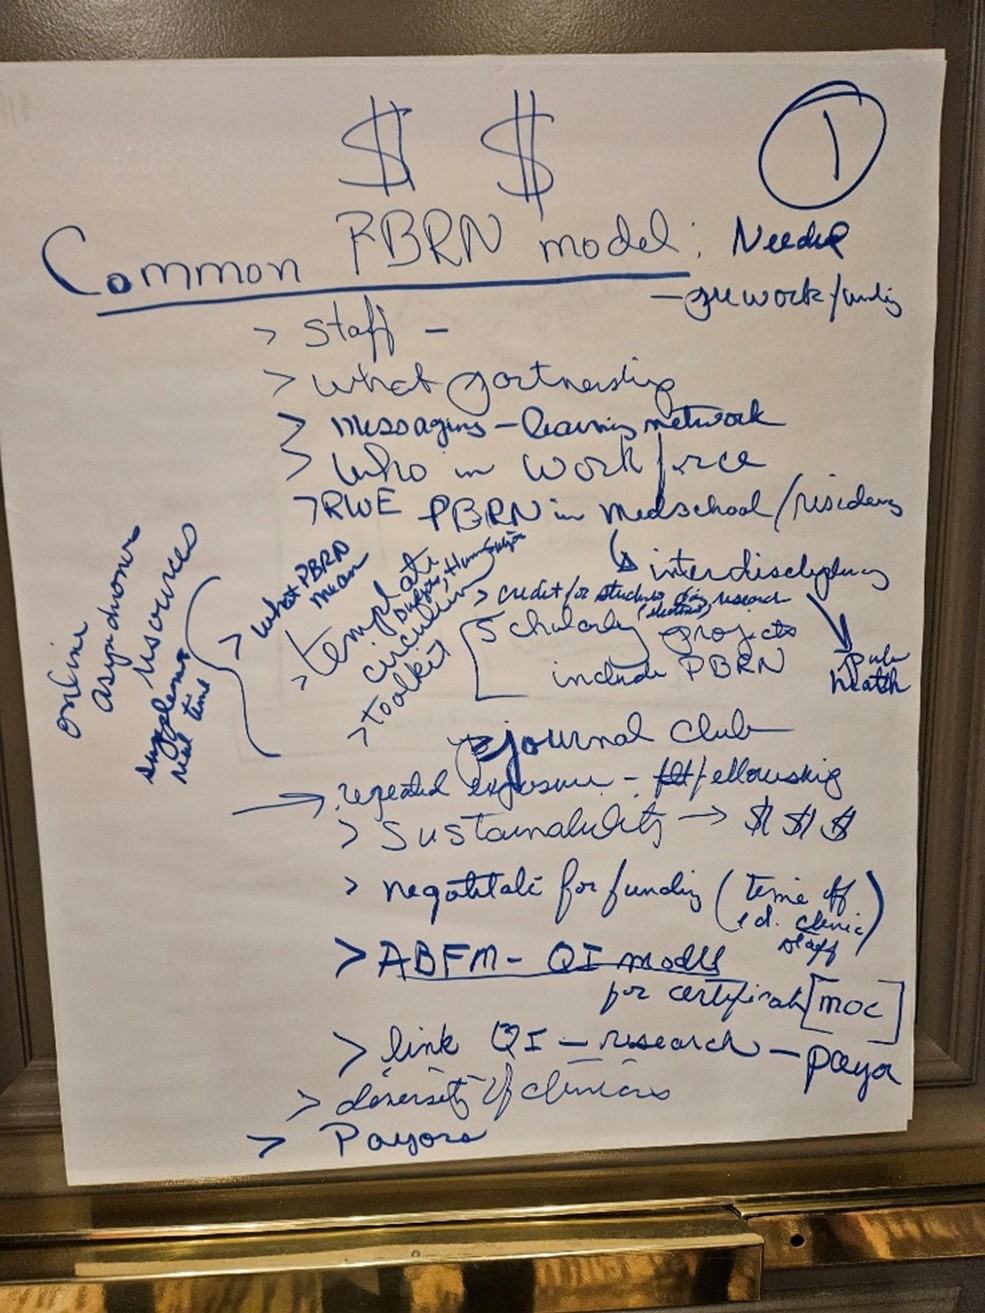 $ $
1
Common PBRN model: Needed
> Staff -
> what partnership
> messaging - learning network
> Who in workforce
> RWE PBRN in Medschool/residency
interdisciplinary
public health
> credit for students doing research
Scholarly projects
include PBRN
> what PBRN mean
> template
> toolkit
online
asynchronous
resources
real time
> journal club
→ repeated exposure - fellowship
> Sustainability → $ $ $
> negotitate for funding (time off
clinic
staff)
> ABFM - QI models
for certificate [MOC]
> link QI - research - payor
> diversity of clinicians
> Payors